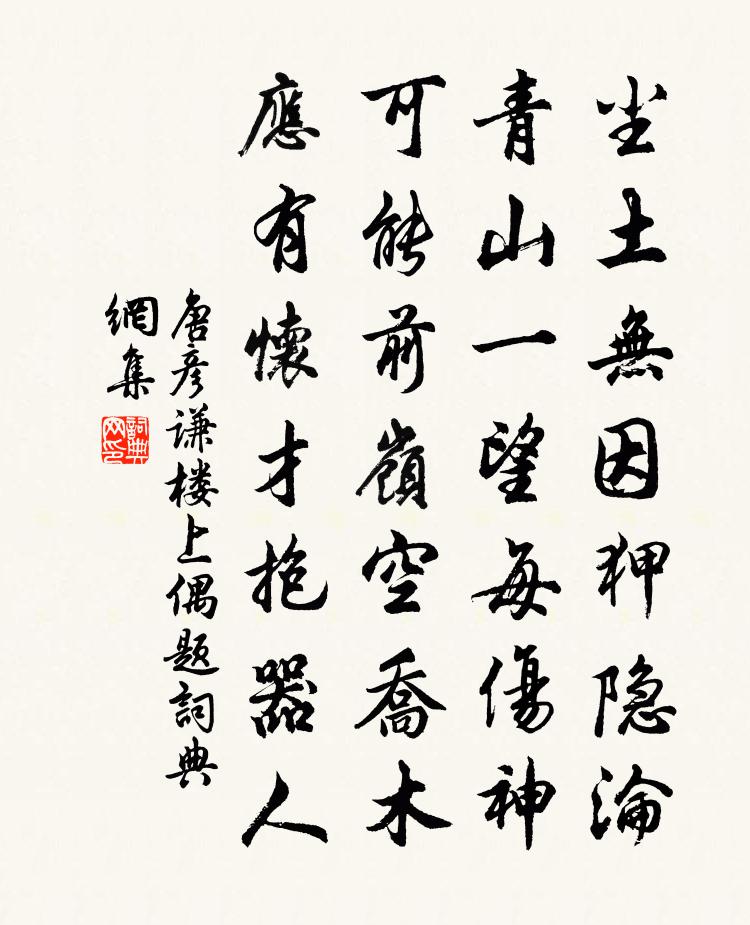 尘土無因狎隐淪
青山一望每傷神
可能前嶺空喬木
應有懷才抱器人
唐彦谦楼上偶题詞典
網集
詞典
网印